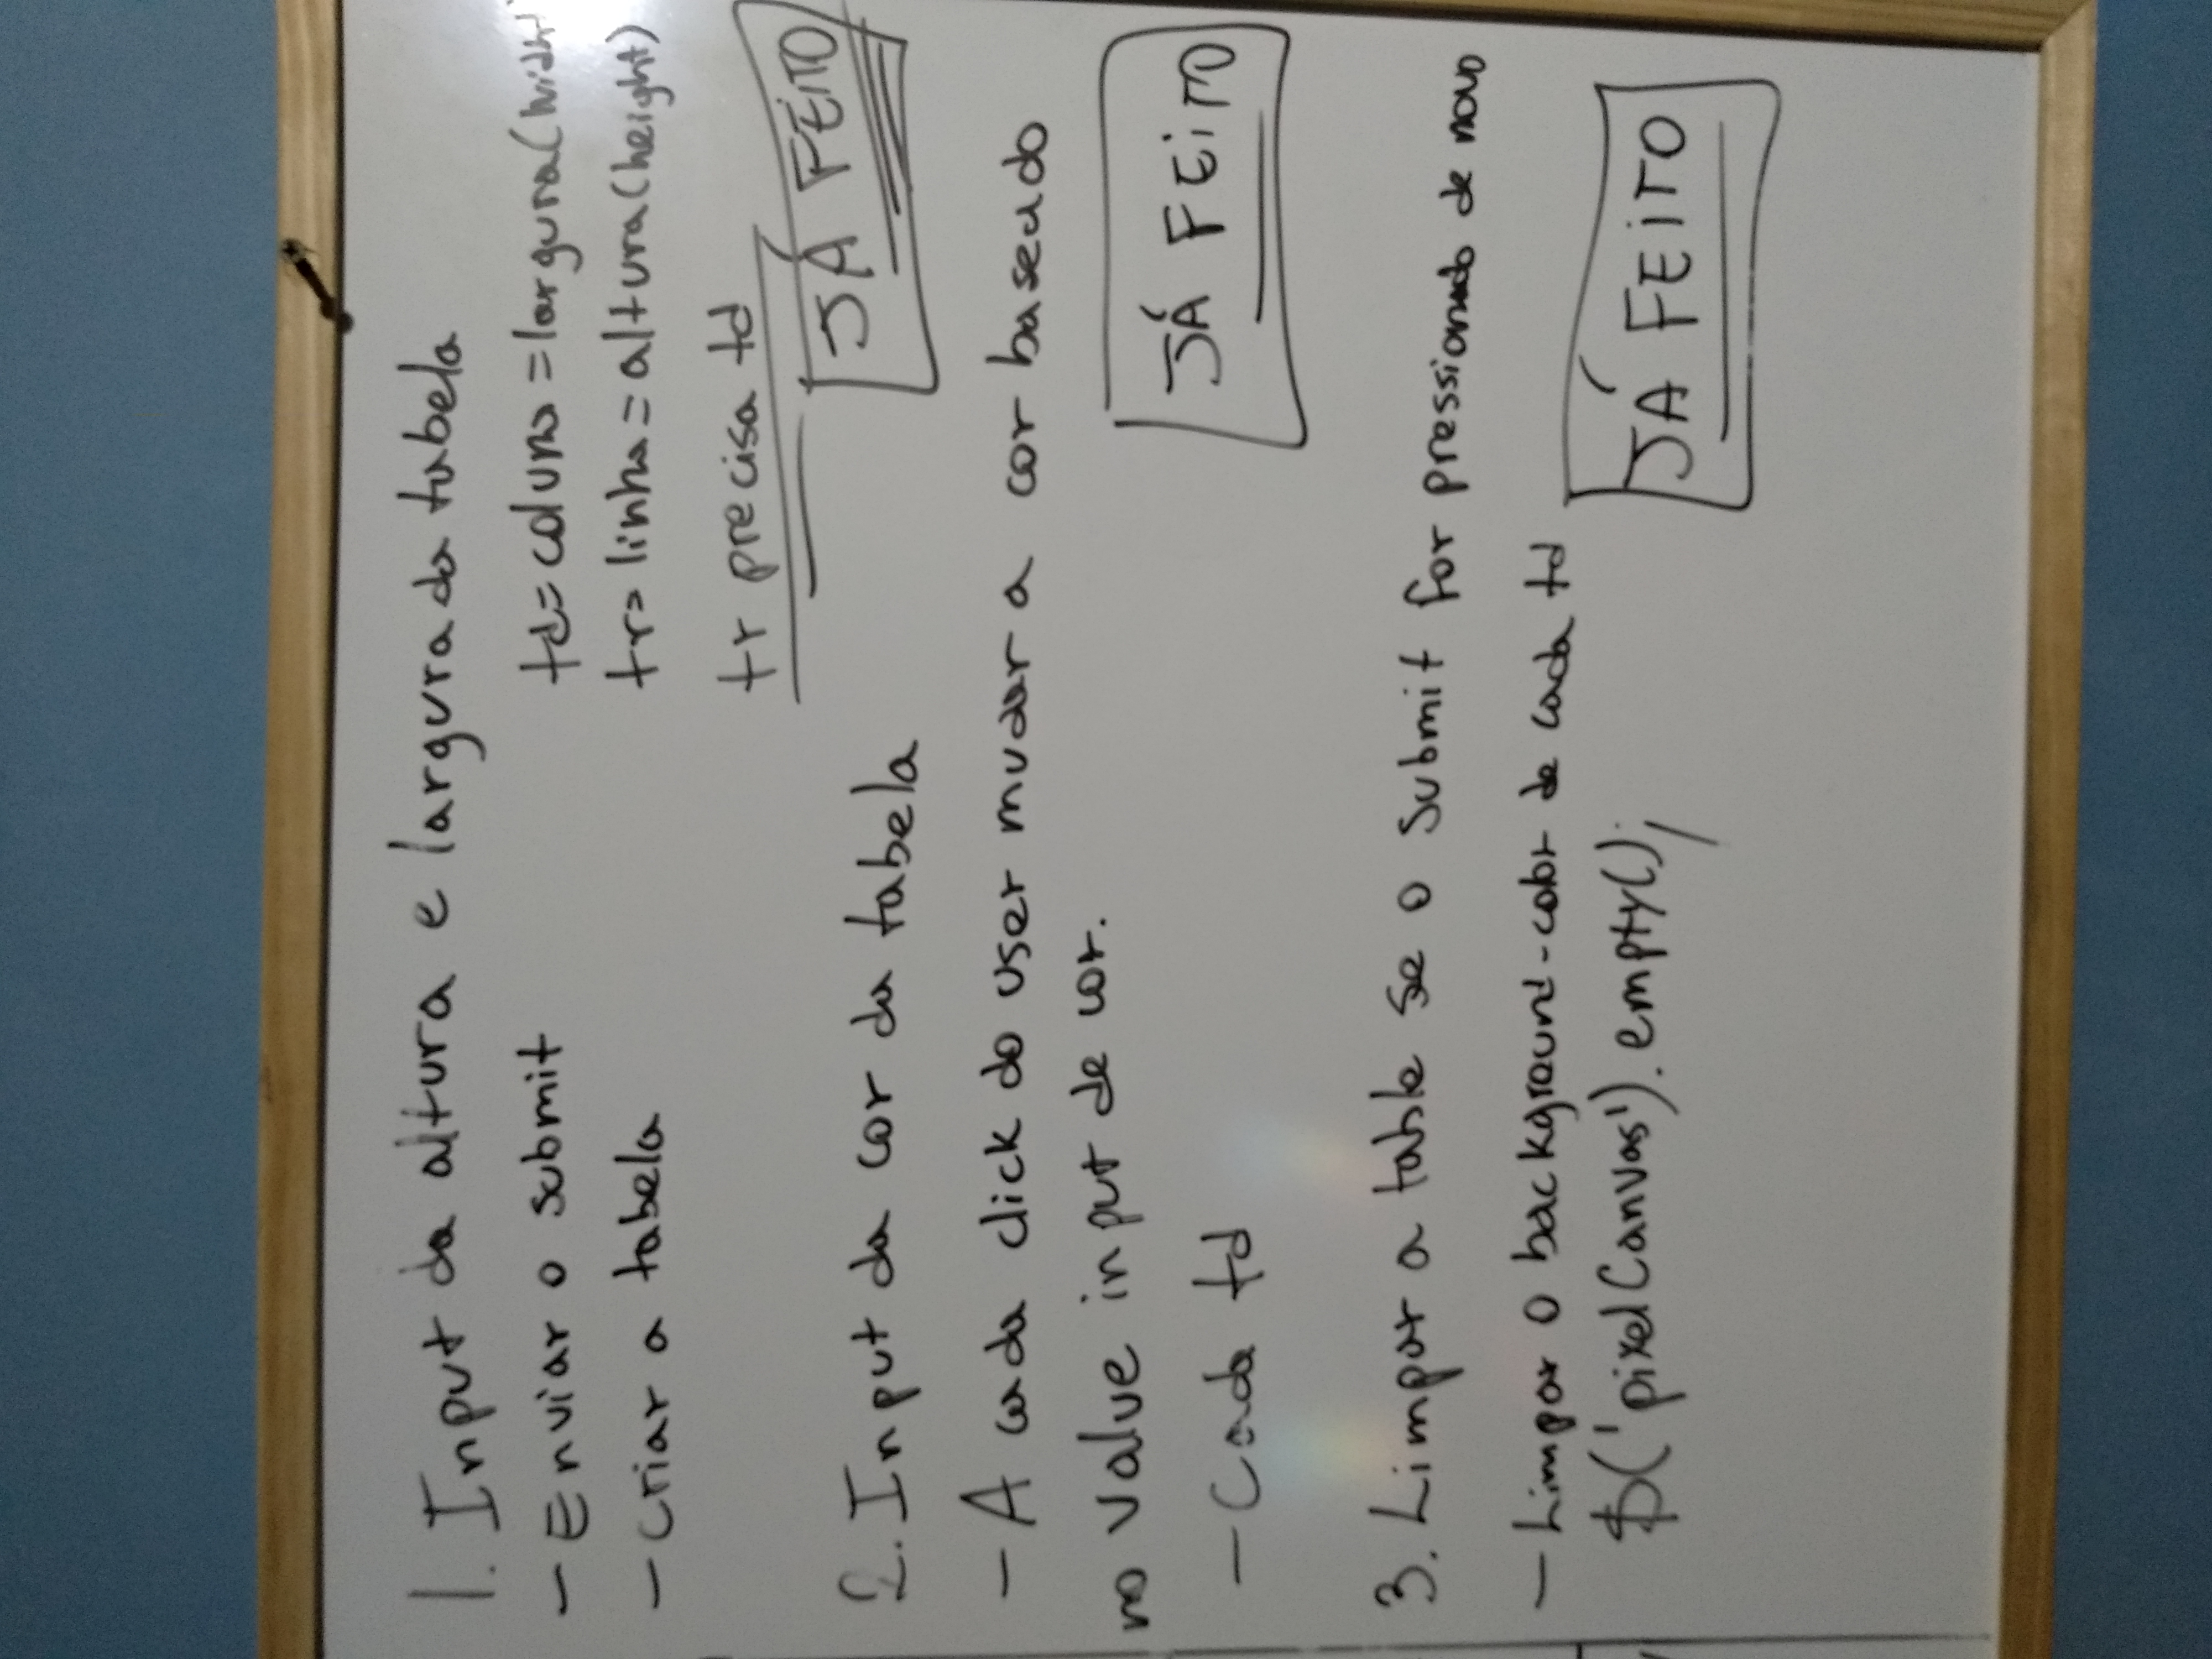 1. Input da altura e largura da tabela
- Enviar o submit
td = coluna = largura (width
- Criar a tabela
tr = linha = altura (height)
tr precisa td
JÁ FEITO
2. Input da cor da tabela
- A cada click do user mudar a cor baseado
no value input de cor.
JÁ FEITO
- Cada td
3. Limpar a table se o submit for pressionado de novo
- Limpar o background-color de cada td
$('pixelCanvas').empty();
JÁ FEITO